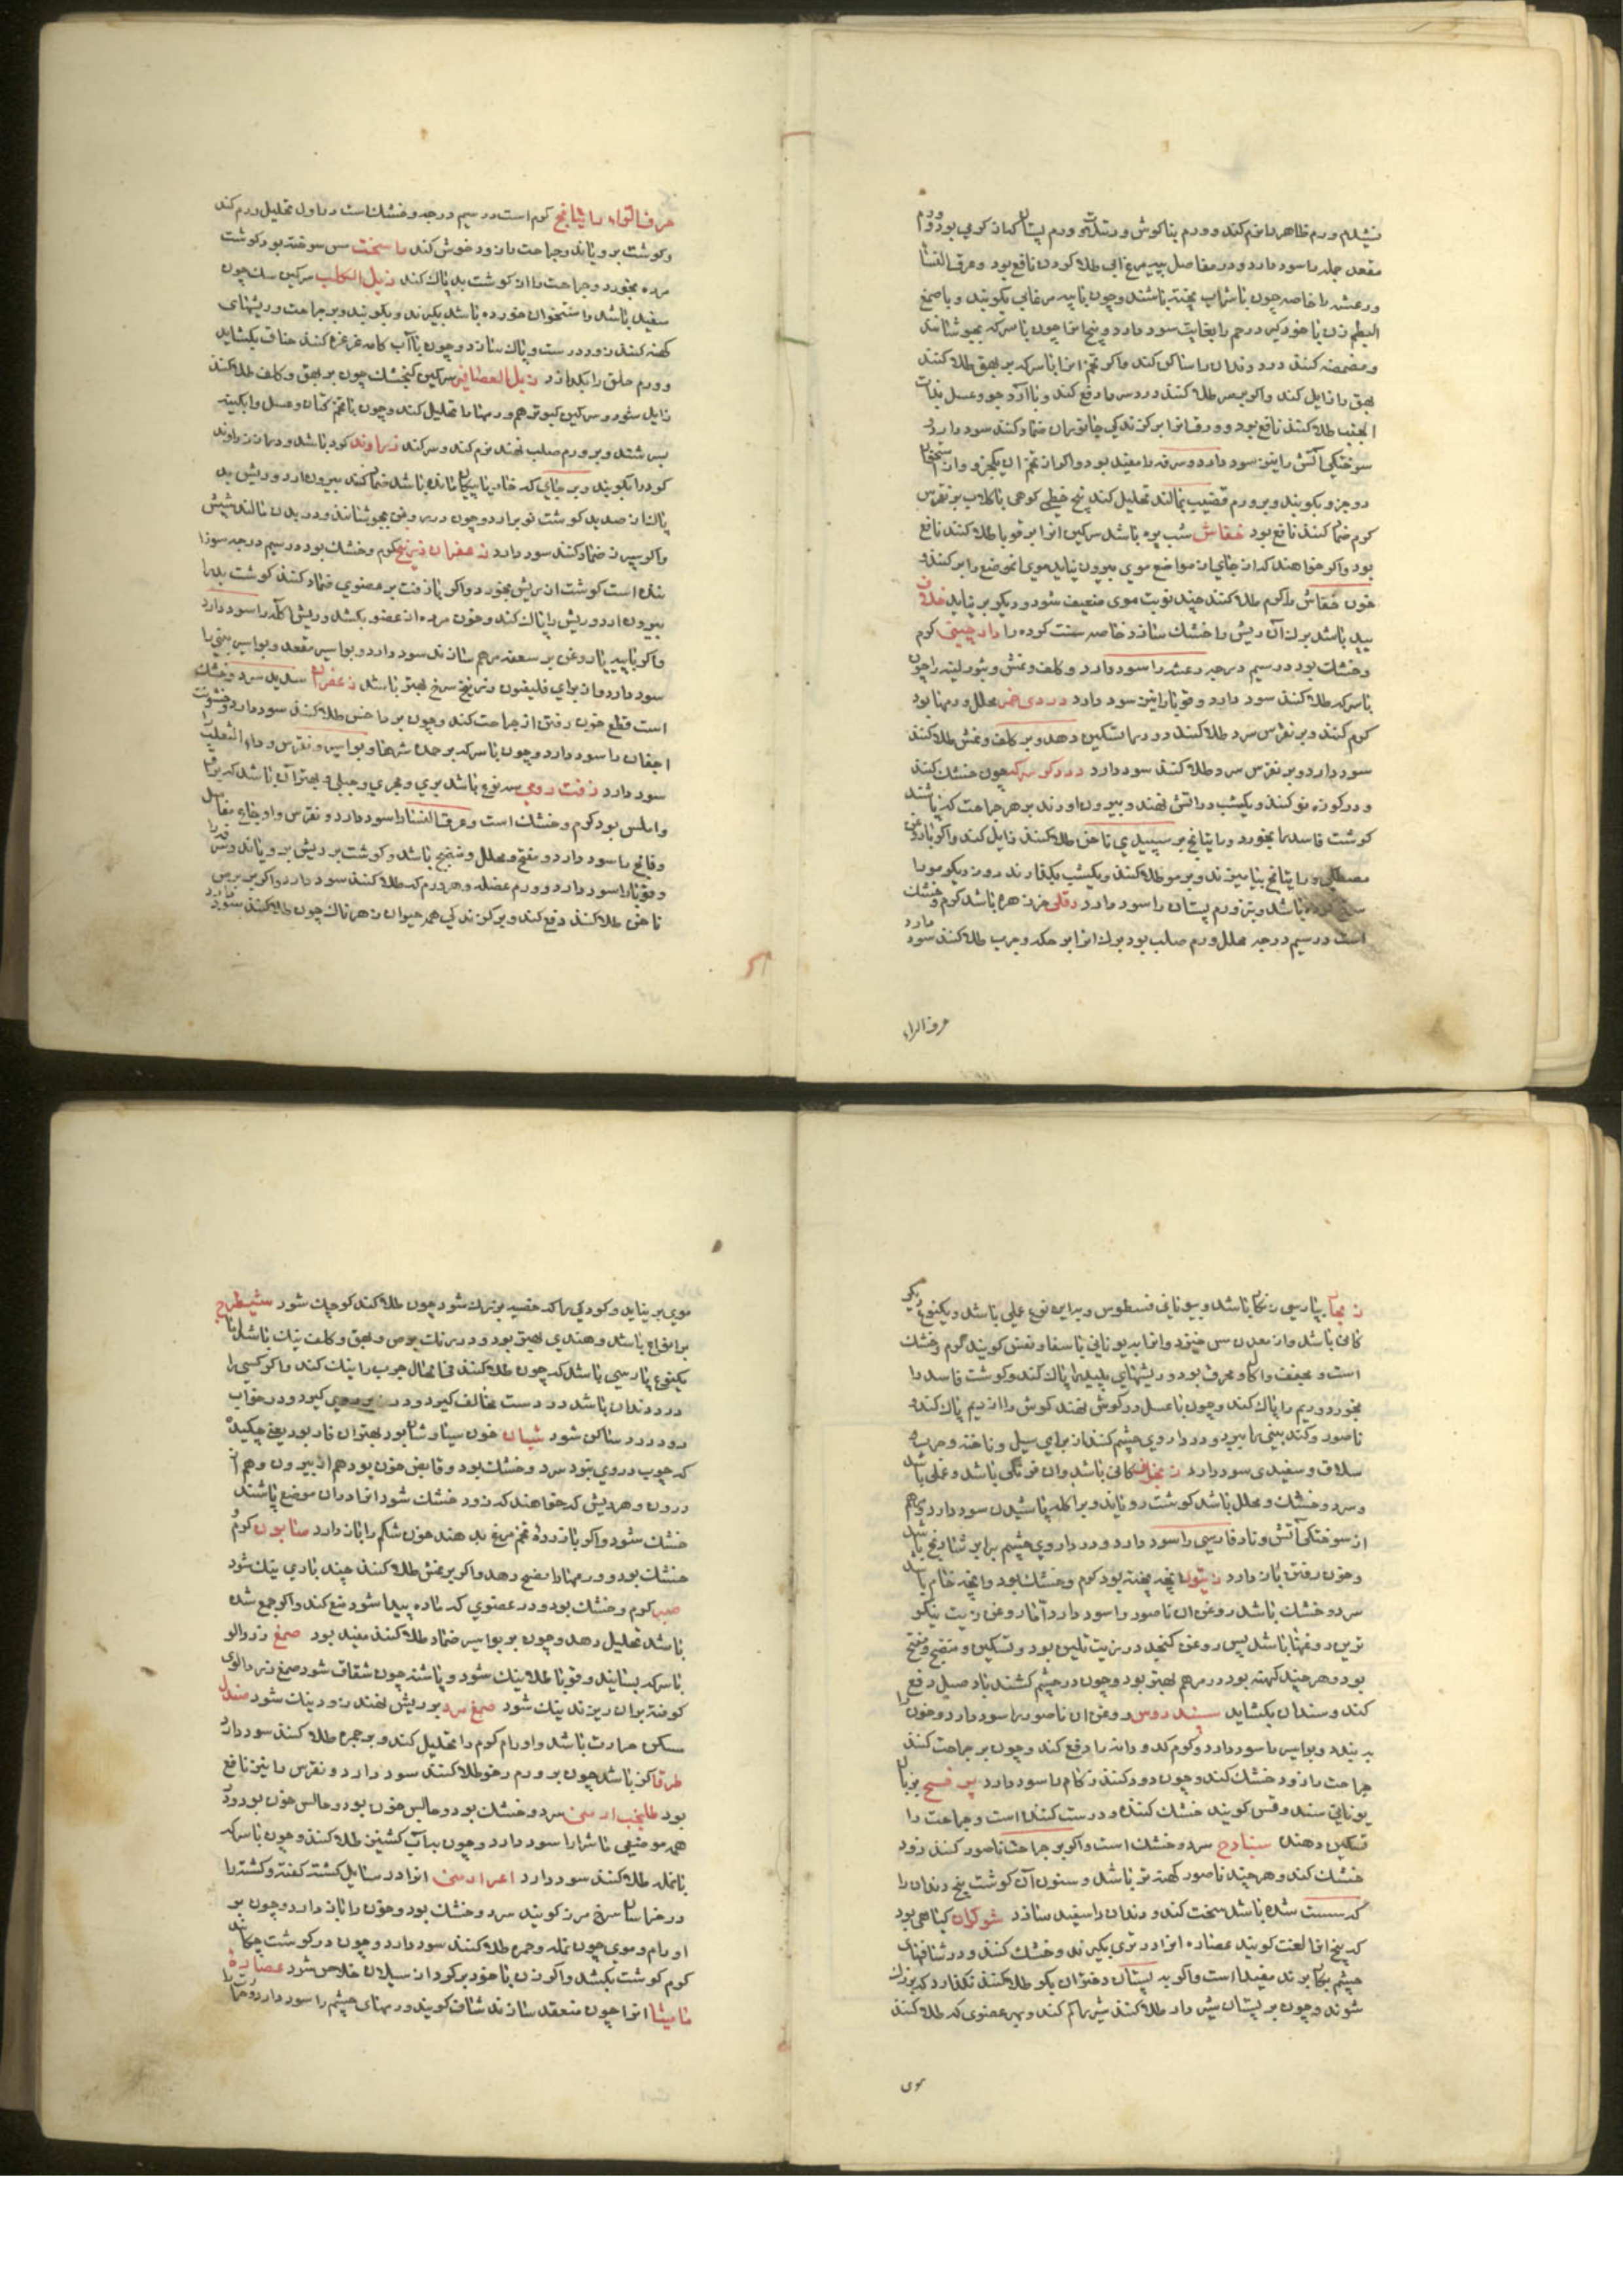 نیلم ورم ظاهر را نرم کند و ورم بناکوش و
مقعد جمله را سود دارد و در مفاصل ببیه مرغ آبی طلا کردن نافع بود و عرق النسا
و رعشه را خاصه چون باشراب پخته باشند و چون بابیه مرغابی بکویند و با صمغ
البطم زن باخود کیرد رحم را بغایت سود دارد و بیخ انرا چون باسرکه بجوشانند
و مضمضه کنند درد دندان را ساکن کند و اکر تخم انرا باسرکه بر بهق طلا کنند
بهق را زایل کند و اکر بر سر طلا کنند درد سر را دفع کند و با آرد جو و عسل
الجنب طلا کنند نافع بود و ورق انرا بر کزندکی جانوران ضماد کنند سود دارد
سوختکی آتش را نیز سود دارد و سرفه را مفید بود و اکر از تخم ان یکجزو و از
دو جزو بکویند و بر ورم قضیب بمالند تحلیل کند بیخ خطمی کوهی باکلاب بر نقرس
کرم ضماد کنند نافع بود خفاش شب پره باشد سرکین انرا بر قوبا طلا کنند نافع
بود و اکر خواهند که از جای ان مواضع موی بیرون نیاید موی انموضع را بر کنند و
خون خفاش را کرم طلا کنند چند نوبت موی ضعیف شود و دیکر بر نیاید خلاف
بید باشد برك آن ریش را خشك سازد خاصه سنت کرده را دارچینی کرم
و خشك بود در سیم درجه رعشه را سود دارد و کلف و نمش و بثور لبنه را چون
باسرکه طلا کنند سود دارد و قوبا را نیز سود دارد دردی خمر محلل ورمها بود
کرم کنند و بر نقرس سرد طلا کنند درد را تسکین دهد و بر کلف و نمش طلا کنند
سود دارد و بر نقرس سرد طلا کنند سود دارد درد کوسرکه چون خشك کنند
و در کوزه نو کنند و یکشب در آتش نهند و بیرون اورند بر هر جراحت که باشد
کوشت فاسد را بخورد و با راتیانج بر سپیدی ناخن طلا کنند زایل کند و اکر با روغن
مصطکی و راتیانج بیامیزند و بر مو طلا کنند و یکشب بکذارند روز دیکر مو را
سرخ کرده باشد و نیز ورم پستان را سود دارد دفلی خرزهره باشد کرم و خشك
است در سیم درجه محلل ورم صلب بود برك انرا بر حکه و جرب طلا کنند سود دارد
حرف الراء
حرف الراء راتیانج کرم است در سیم درجه و خشك است در اول تحلیل ورم کند
و کوشت برویاند و جراحت را زود خوش کند راسخت مس سوخته بود کوشت
مرده بخورد و جراحت را از کوشت بد پاك کند زبل الکلب سرکین سك چون
سفید باشد و استخوان خورده باشد بکیرند و بکوبند و بر جراحت و ریشهای
کهنه کنند زود درست و پاك سازد و چون با آب کامه غرغره کنند خناق بکشاید
و ورم حلق را بکدازد زبل العصافیر سرکین کنجشك چون بر بهق و کلف طلا کنند
زایل شود و سرکین کبوتر هم ورمها را تحلیل کند و چون باتخم کتان و عسل و انکبینه
بسرشند و بر ورم صلب نهند نرم کند و سر کند زراوند کرد باشد و دراز زراوند
کرد را بکوبند و بر جای که خار یا پیکان مانده باشد ضماد کنند بیرون ارد و ریش بد
پاك از صدید کوشت نو برارد و چون در روغن بجوشانند و در بدن مالند شپش
و اکر بسپرز ضماد کنند سود دارد زعفران زرنیخ کرم و خشك بود در سیم درجه سوزا
ننده است کوشت از ریش بخورد و اکر بازفت بر عضوی ضماد کنند کوشت بد را
بیرون ارد و ریش را پاك کند و خون مرده از عضو بکشد و ریش اکله را سود دارد
و اکر بابیه یا روغن بر سعفه مرهم سازند سود دارد و بواسیر مقعد و بواسیر بینی را
سود دارد و از برای قلیفیون زرنیخ سرخ بهتر باشد زعفران سدید سرد و خشك
است قطع خون رفتن از جراحت کند و چون بر داخس طلا کنند سود دارد و خشونت
اجفان را سود دارد و چون باسرکه بر حدت شرها و بواسیر و نقرس و داء الثعلب
سود دارد زفت رومی سه نوع باشد بری و بحری و جبلی و بهتر آن باشد که براق
و املس بود کرم و خشك است و عرق النسا را سود دارد و نقرس و اوجاع مفاصل
و فالج را سود دارد و مفتح و محلل و منضج باشد و کوشت بر ریش برویاند و
و قوبا را سود دارد و ورم عضله و هر ورم که طلا کنند سود دارد و اکر بر برص
ناخن طلا کنند دفع کند و بر کزندکی همه حیوان زهرناك چون طلا کنند سود دارد
زنجار بپارسی زنکار باشد و بیونانی قسطوس و بر این نوع عملی باشد و یکنوع دیکر
کانی باشد و از معدن مس خیزد و انرا به یونانی کویند کرم و خشك
است و مجفف و اکال و محرق بود و ریشهای پلید را پاك کند و کوشت فاسد را
بخورد و ریم را پاك کند و چون باعسل در کوش نهند کوش را از ریم پاك کند و
ناصور و کند بینی را ببرد و در داروی چشم کنند از برای سبل و ناخنه و جرب و
سلاق و سفیدی سود دارد زنجفر کانی باشد و ان فرنکی باشد و عملی باشد
و سرد و خشك و محلل باشد کوشت رویاند و بر اکله پاشیدن سود دارد و هم
از سوختکی آتش و نار فارسی را سود دارد و در داروی چشم برابر شادنج باشد
و خون رفتن باز دارد زیتون انچه پخته بود کرم و خشك بود و انچه خام باشد
سرد و خشك باشد روغن ان ناصور را سود دارد اما روغن زیت نیکو
ترین روغنها باشد پس روغن کنجد در زیت تلیین بود و تسکین و منضج و مفتح
بود و هر چند کهنه بود در مرهم بهتر بود و چون در چشم کشند باد صبل دفع
کند و سندان بکشاید سندروس و روغن ان ناصور را سود دارد و خون را
ببندد و بواسیر را سود دارد و کرم کدو دانه را دفع کند و چون بر جراحت کنند
جراحت را زود خشك کند و چون دود کنند زکام را سود دارد بزبان
یونانی سندوقس کویند خشك کننده و درست کننده است و جراحت را
تسکین دهد سنبادج سرد و خشك است و اکر بر جراحت ناصور کنند زود
خشك کند و هر چند ناصور کهنه تر باشد و سنون آن کوشت بیخ دندان را
که سست شده باشد سخت کند و دندان را سفید سازد شوکران کیاهی بود
که بیخ انرا لعنت کویند عصاره انرا در تری بکیرند و خشك کنند و در شیافهای
چشم بکار برند مفید است و اکر بر پستان دختران بکر طلا کنند نکذارد که بزرك
شوند و چون بر پستان شیر دار طلا کنند شیر را کم کند و بهر عضوی که طلا کنند
موی
موی بر نیاید و کودکی را که خصیه بزرك شود چون طلا کنند کوچك شود شیطرج
بر انواع باشد و هندی بهتر بود و در رنك برص و بهق و کلف نیك باشد اما
یکنوع پارسی باشد که چون طلا کنند فی الحال جرب را نیك کند و اکر کسی را
درد دندان باشد در دست مخالف کیرد و در خواب
رود درد ساکن شود شیان خون سیاوشان بود بهترین ان قار بود یعنی چکیده
که چوب در وی نبود سرد و خشك بود و قابض خون بود هم از بیرون و هم از
درون و هر ریش که خواهند که زود خشك شود انرا در ان موضع پاشند
خشك شود و اکر با زرده تخم مرغ بدهند خون شکم را باز دارد صابون کرم و
خشك بود و ورمها را نضج دهد و اکر بر نمش طلا کنند چند باری نیك شود
صبر کرم و خشك بود و در عضوی که ماده پیدا شود منع کند و اکر جمع شده
باشد تحلیل دهد و چون بر بواسیر ضماد طلا کنند مفید بود صمغ زردالو
باسرکه بسایند و قوبا طلا نیك شود و پاشنه چون شقاق شود صمغ زردالوی
کوفته بران ریزند نیك شود صمغ سرو بر ریش نهند زود نیك شود صندل
مسکن حرارت باشد و اورام کرم را تحلیل کند و بر حمره طلا کنند سود دارد
طرفا کز باشد چون بر ورم رخو طلا کنند سود دارد و نقرس را نیز نافع
بود سرد و خشك بود و حابس خون بود و حابس خون بود و در
همه موضعی ماشرا را سود دارد و چون بداب کشنیز طلا کنند و چون باسرکه
بانمله طلا کنند سود دارد انرا در مسایل کشته کفته و کشته را
در خراسان سرخ مرز کویند سرد و خشك بود و خون را باز دارد و چون بر
اورام دموی چون نمله و حمره طلا کنند سود دارد و چون در کوشت چکانند
کرم کوشت بکشد و اکر زن باخود برکیرد از سیلان خلاص شود عصاره
مامیثا انرا چون منعقد سازند شیاف کویند ورمهای چشم را سود دارد